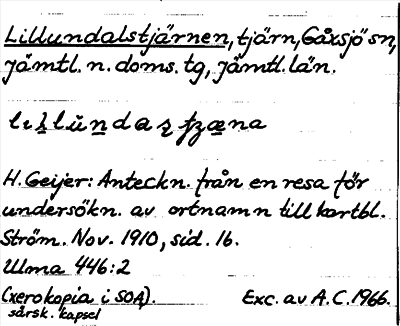 Lillundalstjärnen, tjärn, Gåxsjö sn,
Jämtl. n. doms. tg, Jämtl. län.
H. Geijer: Anteckn. från en resa för
undersökn. av ortnamn till kartbl.
Ström. Nov. 1910, sid. 16.
Ulma 446:2
(xerokopia i SOA). Exc. av A.C. 1966.
särsk. kapsel